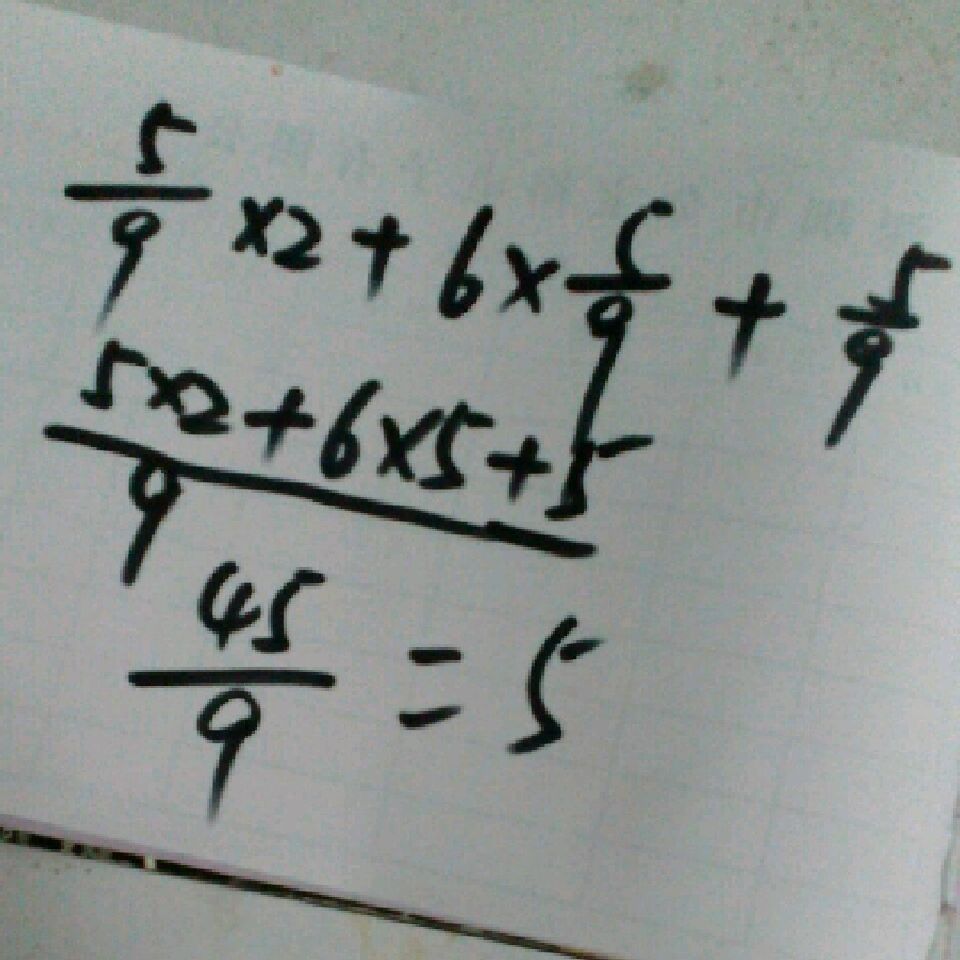 5/9 ×2 + 6 × 5/9 + 5/9
5×2+6×5+5
9
45/9 = 5